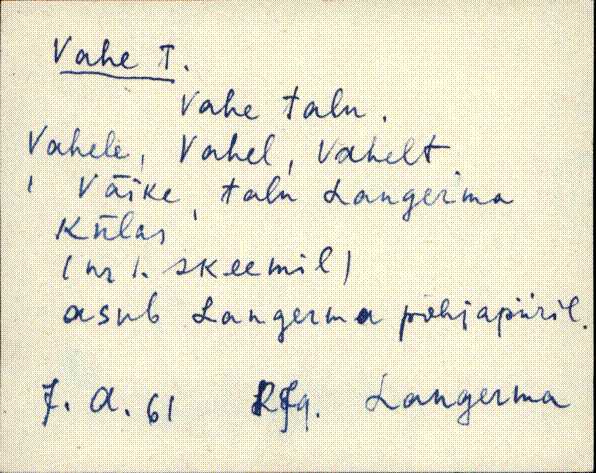 Vahe T.
Vahe talu.
Vahele, Vahel, Vahelt
Väike talu Langerma
külas
(nr 1. skeemil)
asub Langerma põhjapiiril.
J. A. 61 Rfq. Langerma